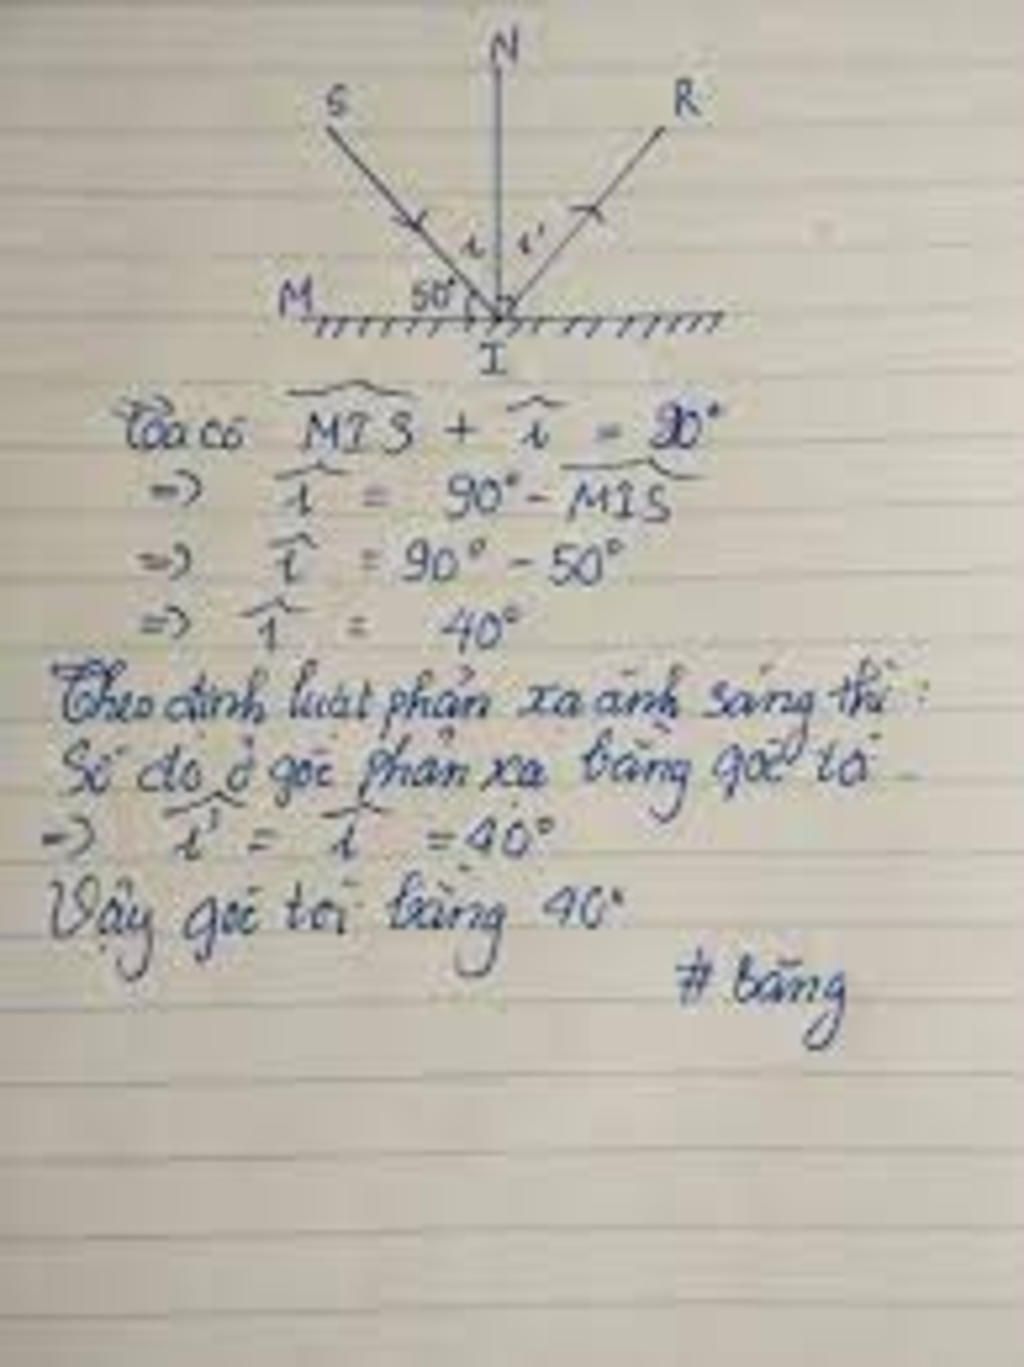 N
S
R
i i'
M 50°
I
Ta có MIS + i = 90°
=> i = 90° - MIS
=> i = 90° - 50°
=> i = 40°
Theo định luật phản xạ ánh sáng thì :
Số đo ở góc phản xạ bằng góc tới
=> i' = i = 40°
Vậy góc tới bằng 40°
# Băng